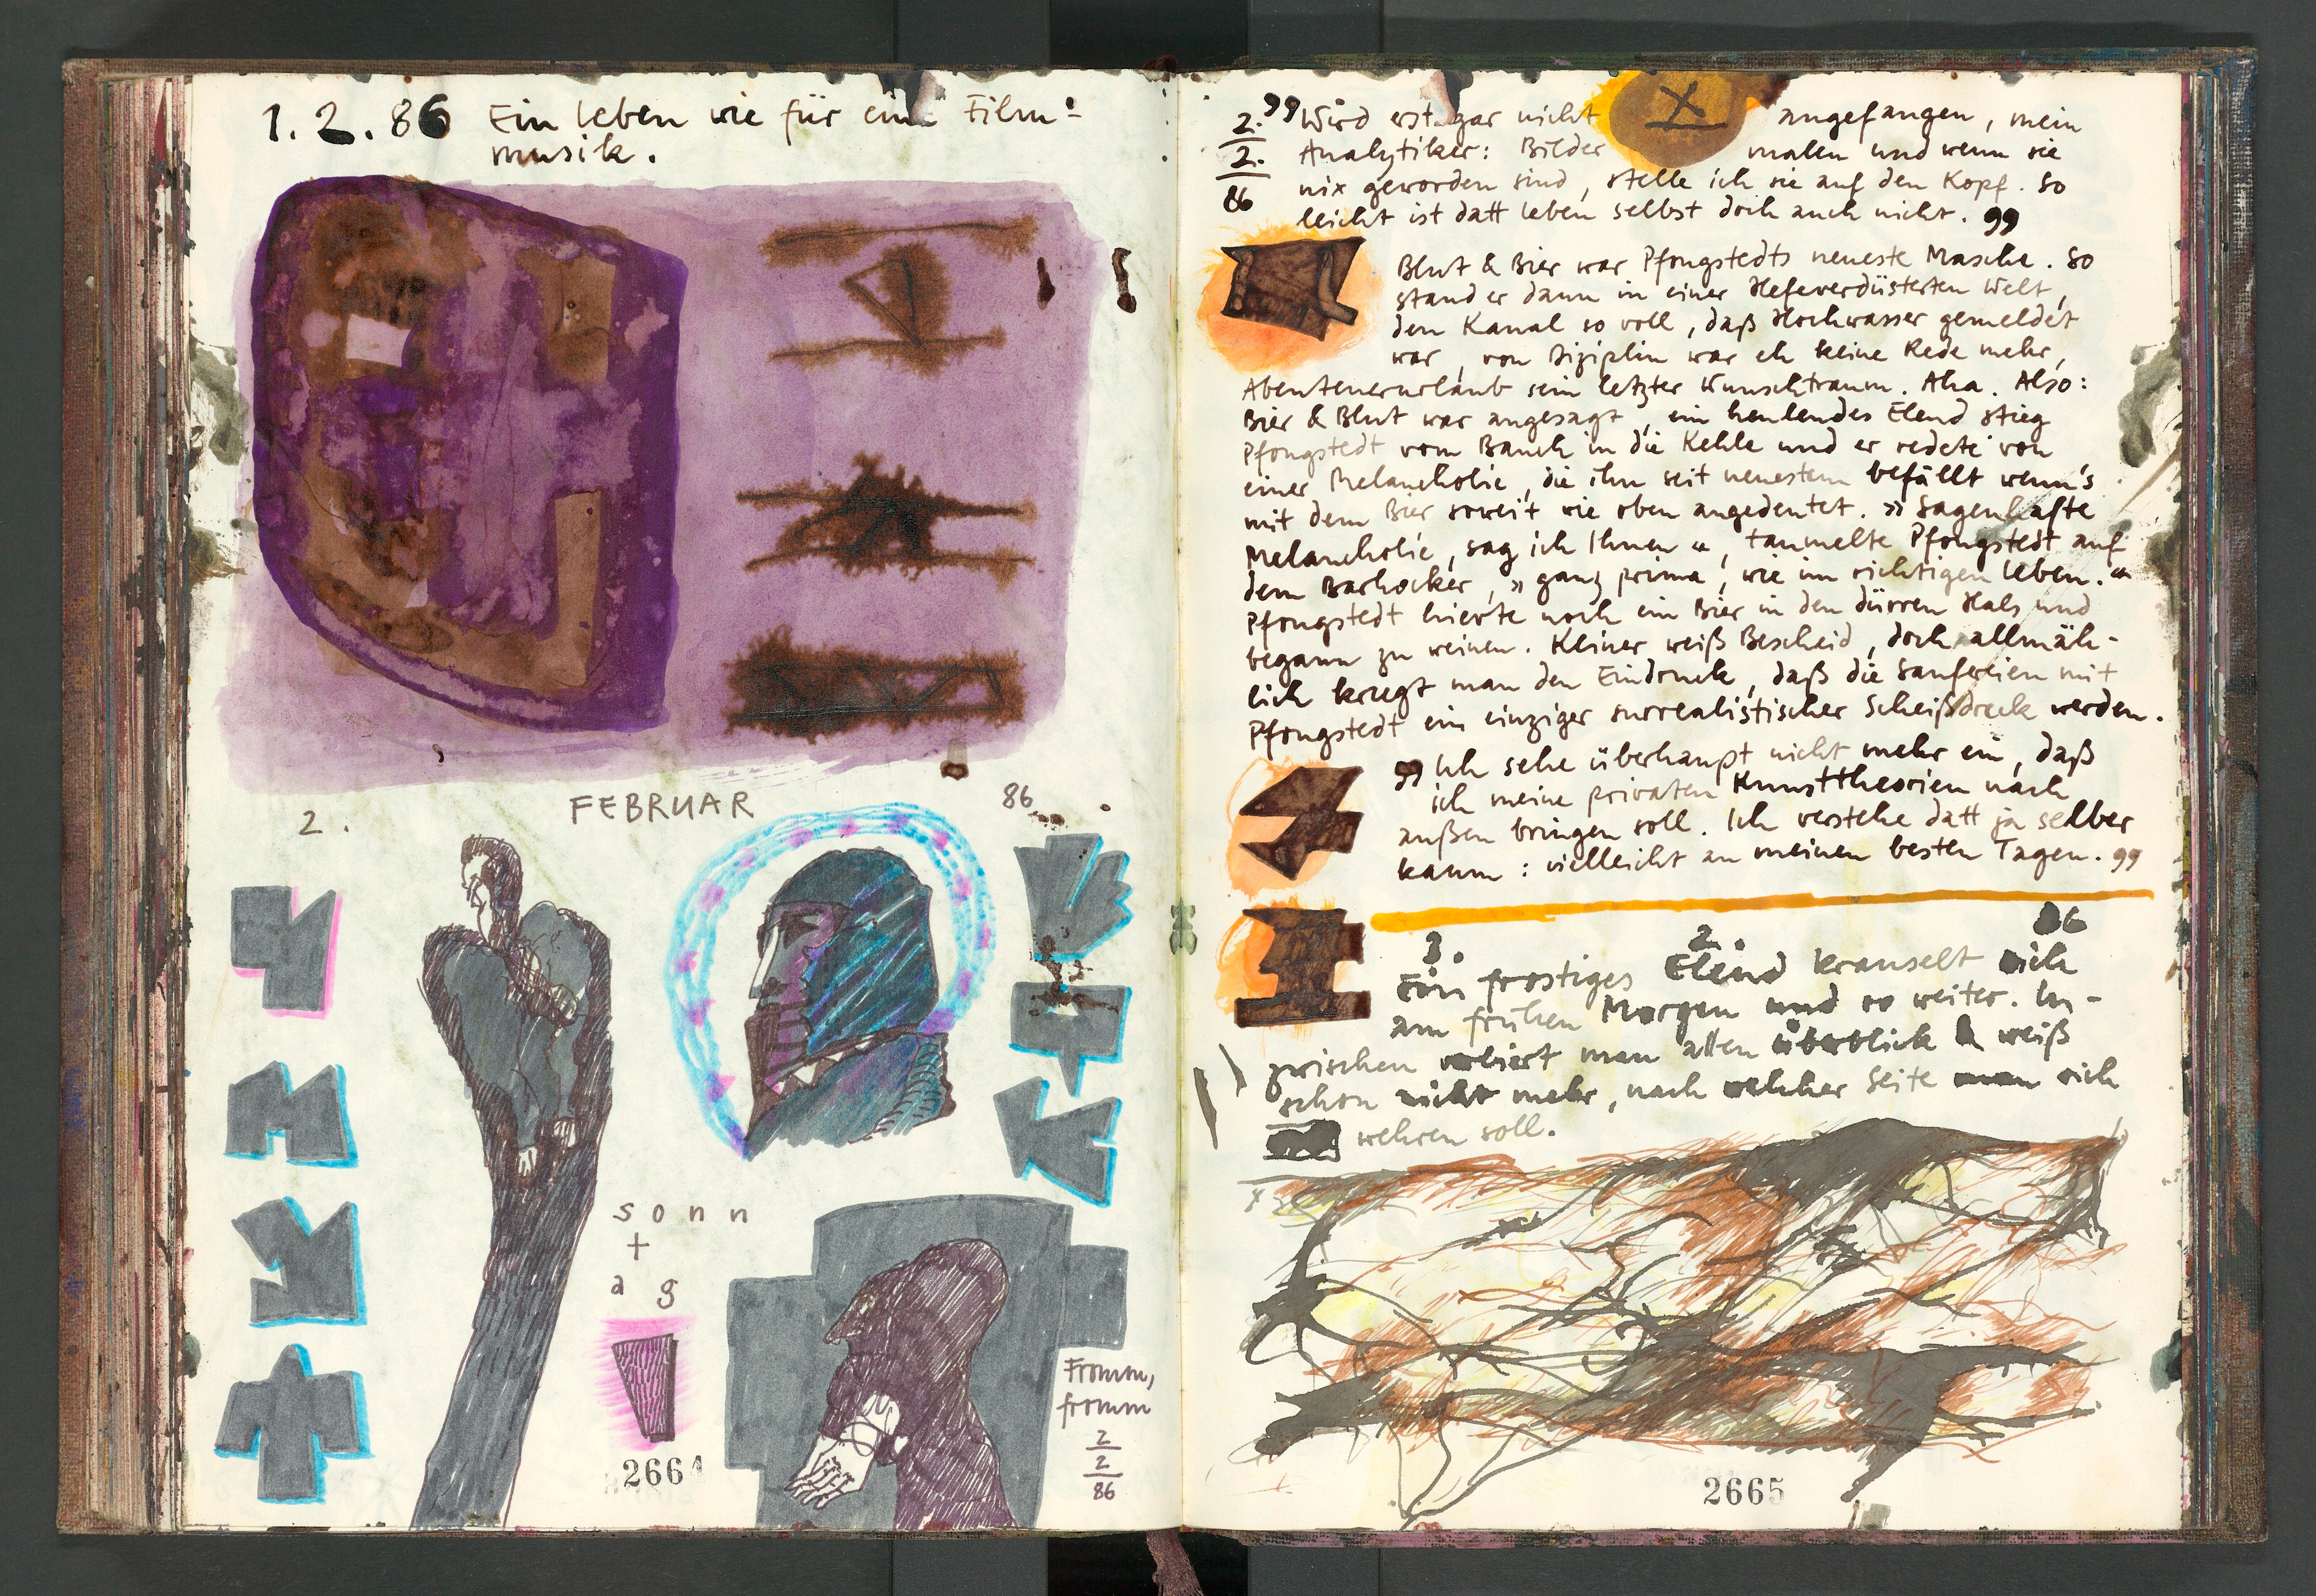 1.2.86 Ein Leben wie für eine Film-
musik.
2. FEBRUAR 86
sonn
+
ag
Fromm,
fromm
2
2
86
2664
2.
2.
86
99 Wird erst gar nicht X angefangen, mein
Analytiker: Bilder malen und wenn sie
nix geworden sind, stelle ich sie auf den Kopf. So
leicht ist datt Leben selbst doch auch nicht. 99
Blut & Bier war Pfongstedts neueste Masche. So
stand er dann in einer Hefeverdüsterten Welt,
den Kanal so voll, daß Hochwasser gemeldet
war, von Diziplin war eh keine Rede mehr,
Abenteuerurlaub sein letzter Wunschtraum. Aha. Also:
Bier & Blut war angesagt, ein heulendes Elend stieg
Pfongstedt vom Bauch in die Kehle und er redete von
einer Melancholie, die ihn seit neuestem befällt wenn's
mit dem Bier soweit wie oben angedeutet. »Sagenhafte
Melancholie, sag ich Ihnen«, taumelte Pfongstedt auf
dem Barhocker, »ganz prima, wie im richtigen Leben.«
Pfongstedt hievte noch ein Bier in den dürren Hals und
begann zu weinen. Keiner weiß Bescheid, doch allmäh-
lich kriegt man den Eindruck, daß die Saufereien mit
Pfongstedt ein einziger surrealistischer Scheißdreck werden.
99 Ich sehe überhaupt nicht mehr ein, daß
ich meine privaten Kunsttheorien nach
außen bringen soll. Ich verstehe datt ja selber
kaum: vielleicht an meinen besten Tagen. 99
3. 2. 86
Ein frostiges Elend kräuselt sich
am frühen Morgen und so weiter. In-
zwischen verliert man allen Überblick & weiß
schon nicht mehr, nach welcher Seite man sich
wehren soll.
2665